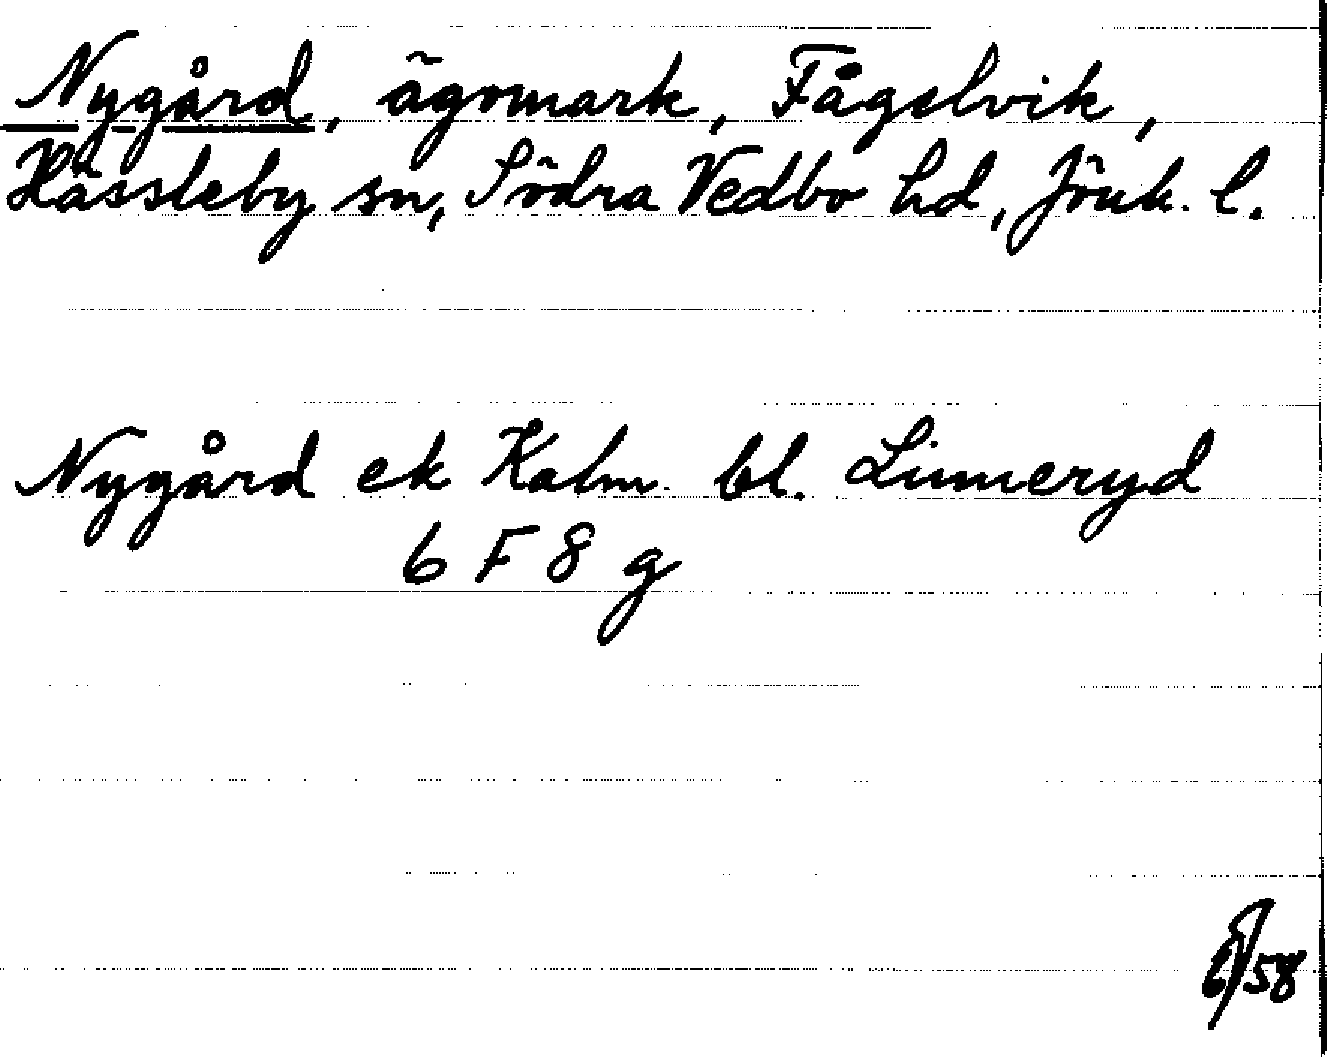 Nygård, ägomark, Fågelvik,
Hässleby sn, Södra Vedbo hd, Jönk. l.
Nygård ek Kalm. bl. Linneryd
6 F 8 g